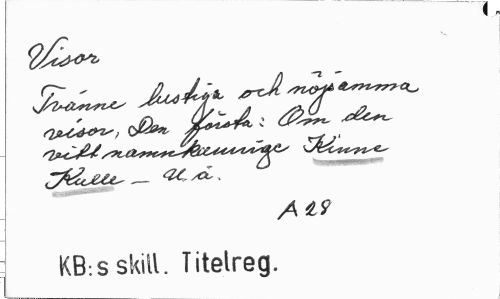 Visor
Tvänne lustiga och nöjsamma
visor, Den första: Om den
vitt namnkunnige Kinne
Kulle – U. å.
A 28
KB:s skill. Titelreg.